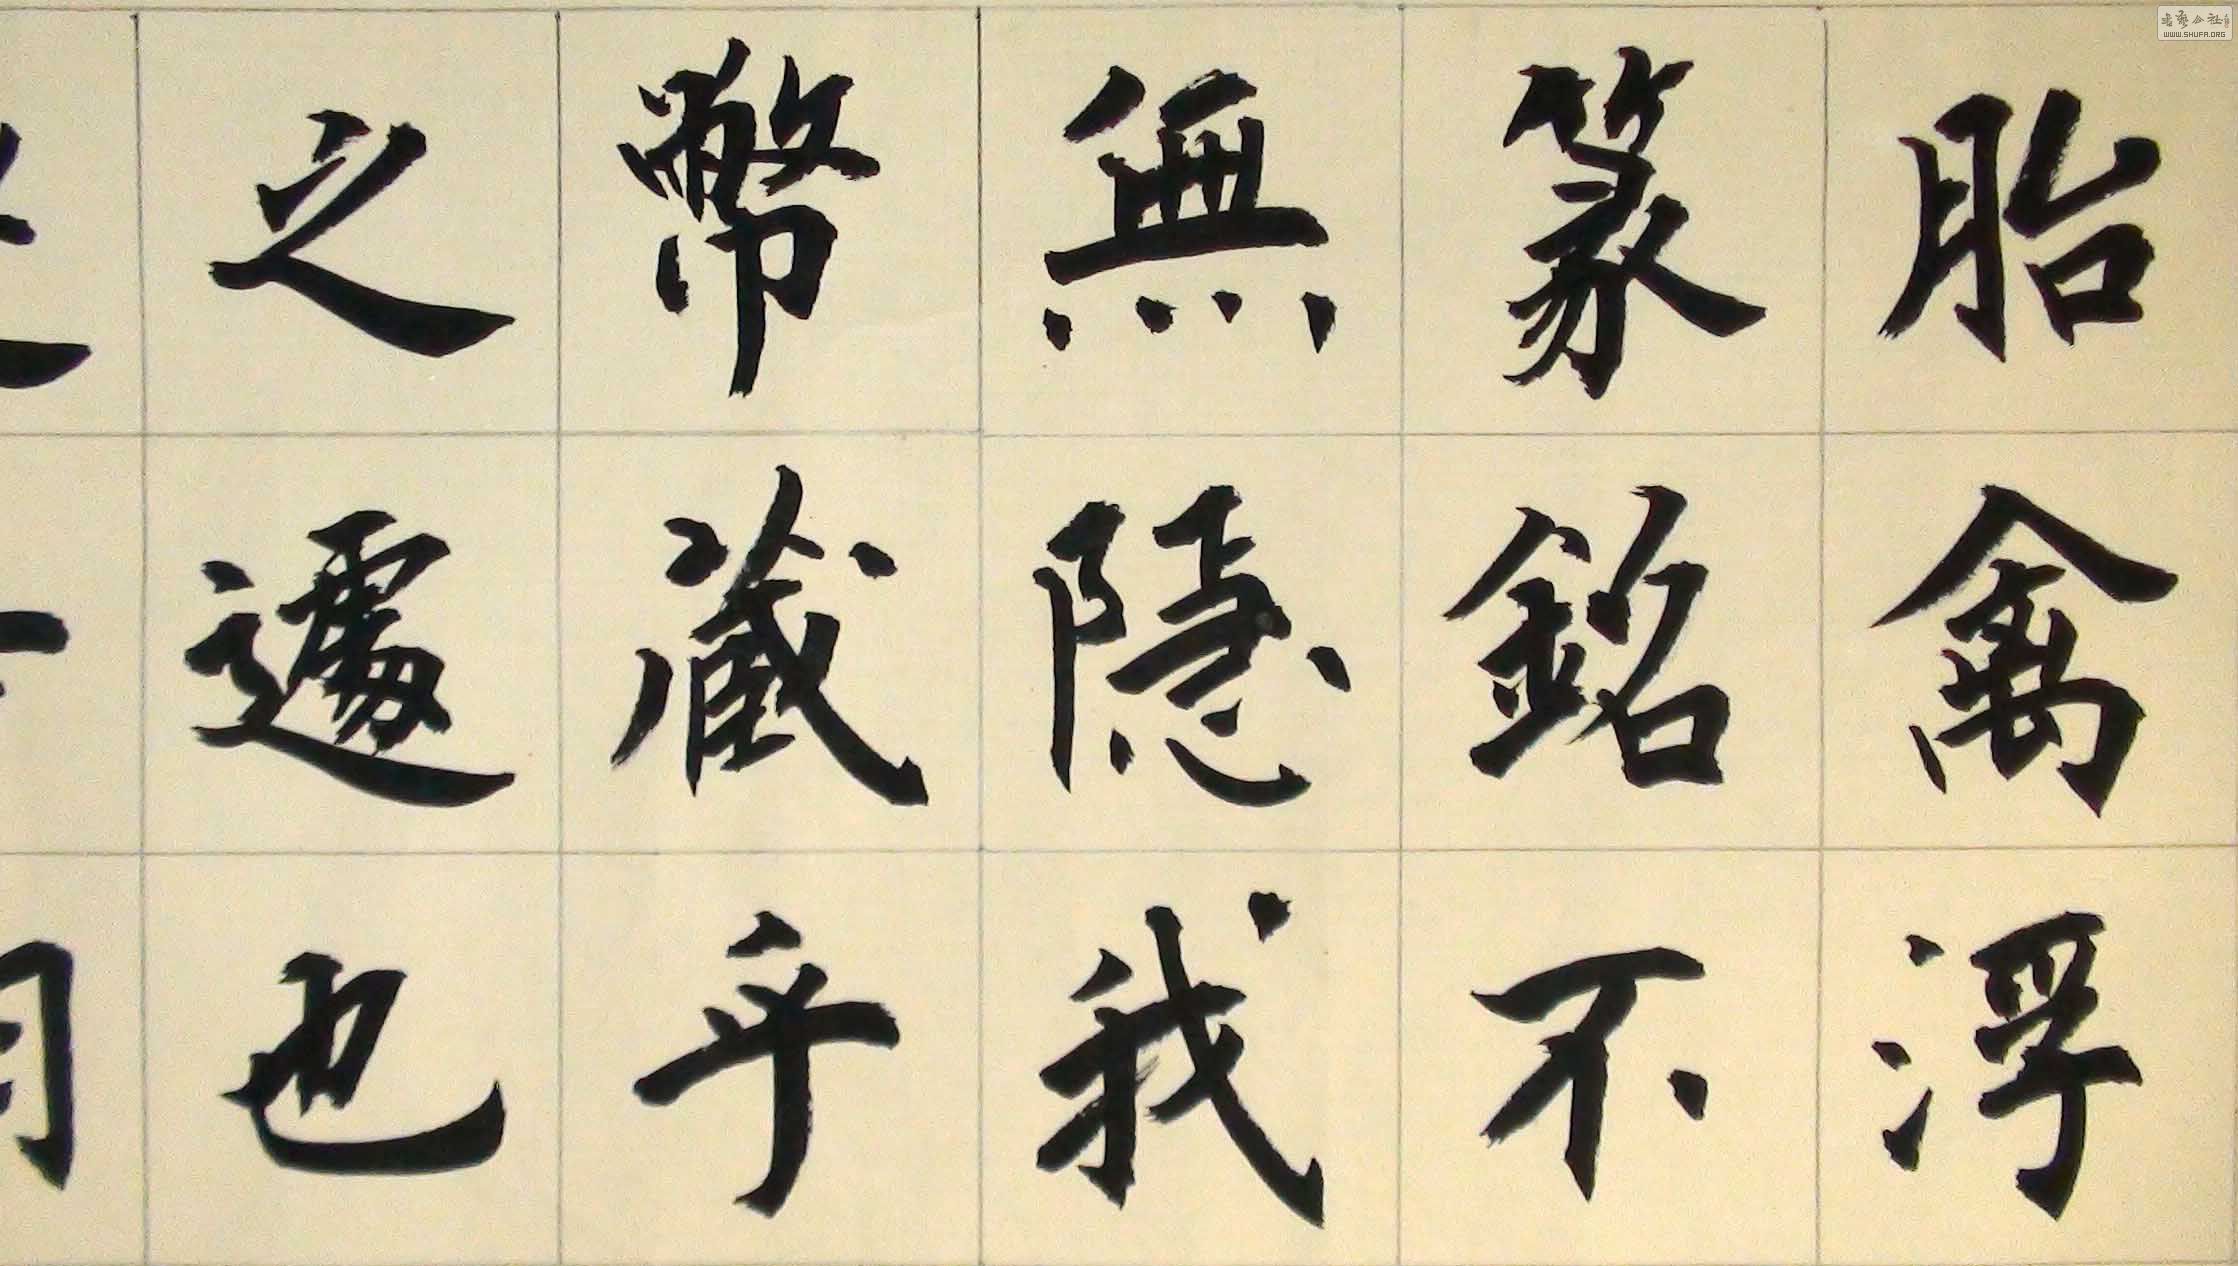 胎禽浮
篆銘不
無隱我
幣藏乎
之遽也
書藝公社
WWW.SHUFA.ORG